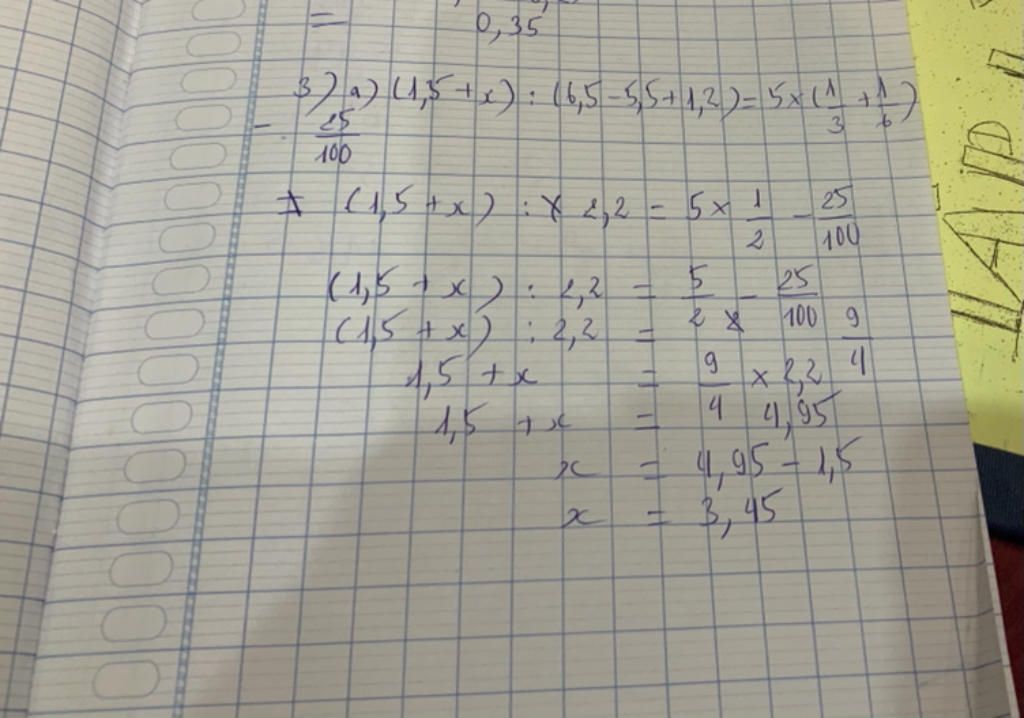 = 0,35
3) a) (1,5 + x) : (6,5 - 5,5 + 1,2) = 5 × (1/3 + 1/6)
- 25/100
(1,5 + x) : 2,2 = 5 × 1/2 - 25/100
(1,5 + x) : 2,2 = 5/2 - 25/100
(1,5 + x) : 2,2 = 9/4
1,5 + x = 9/4 × 2,2
1,5 + x = 4,95
x = 4,95 - 1,5
x = 3,45